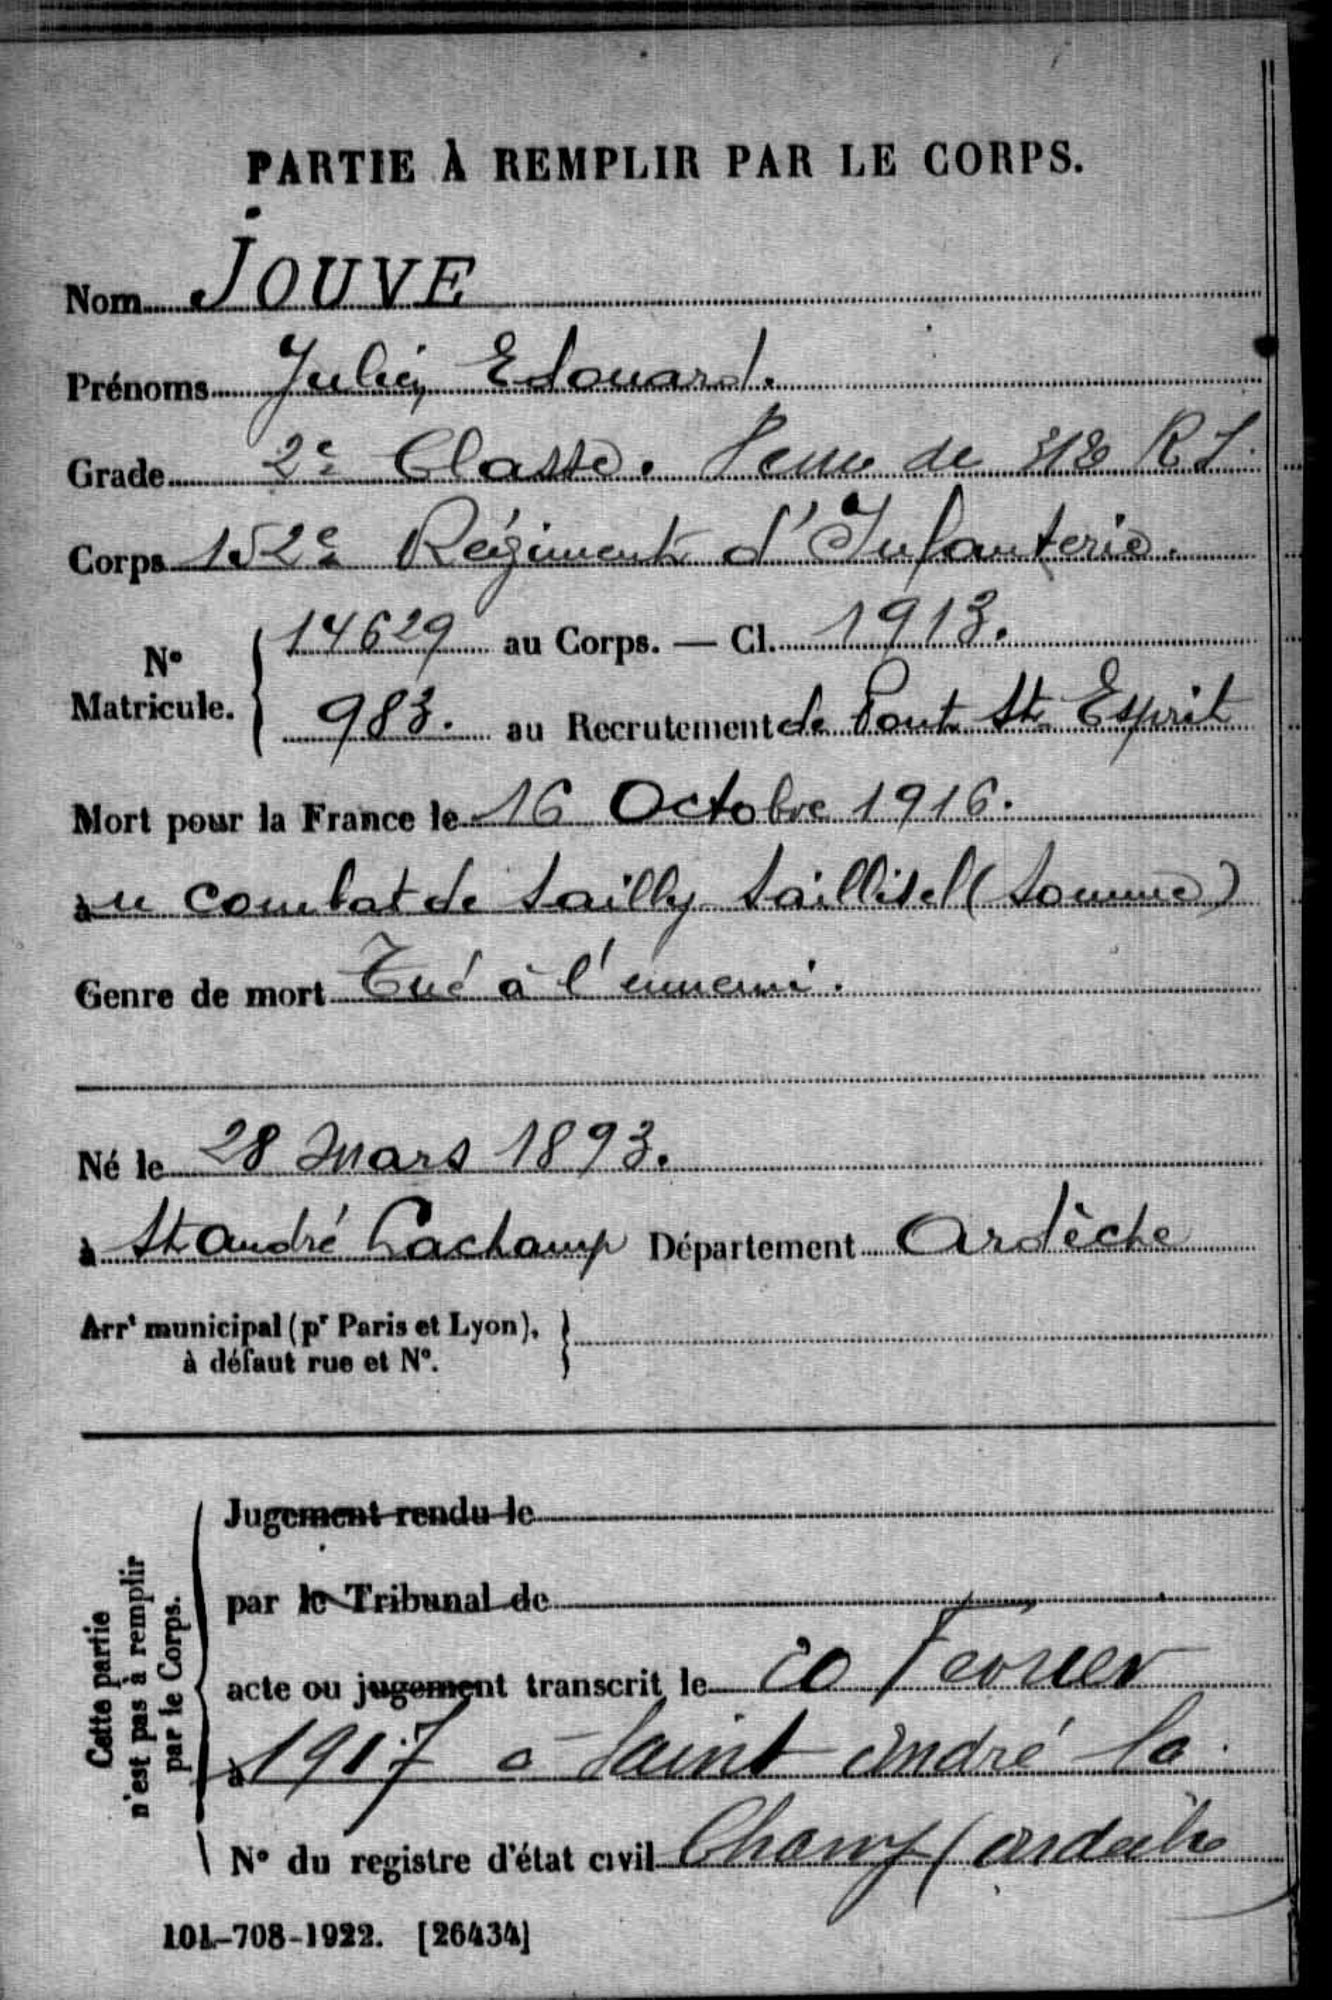 PARTIE À REMPLIR PAR LE CORPS.
Nom JOUVE
Prénoms Julien Edouard.
Grade 2e Classe. Venu de 318e R I.
Corps 152e Régiment d'Infanterie.
No Matricule. 14629 au Corps. — Cl. 1913.
983. au Recrutement de Pont St Esprit
Mort pour la France le 16 Octobre 1916.
au combat de Sailly Saillisel (Somme)
Genre de mort Tué à l'ennemi.
Né le 28 Mars 1893.
à St André Lachamp Département Ardèche
Arrt municipal (pr Paris et Lyon),
à défaut rue et No.
Cette partie
n'est pas à remplir
par le Corps.
Jugement rendu le
par le Tribunal de
acte ou jugement transcrit le 20 Fevrier
à 1917 à Saint André la
No du registre d'état civil Champ (Ardèche
101-708-1922. [26434]